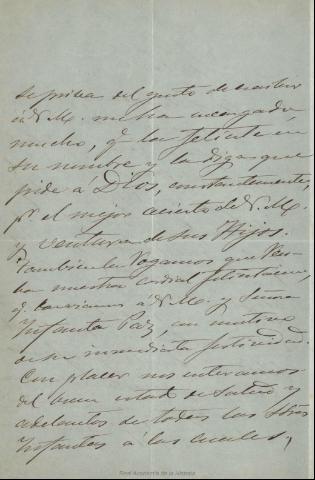 se priva del gusto de escribir
á V.M. me ha encargado
mucho, qe la felicite en
su nombre y la diga que
pide a Dios, constantemente,
pr el mejor acierto de V.M.
y ventura de sus Hijos.
Tambien la rogamos que
ba nuestra cordial felicitacion,
qe enviamos á V.M. y Señora
Infanta Paz, con motivo
de su inmediata festividad.
Con placer nos enteramos
del buen estado de salud y
adelantos de todas las Sras
Infantas a las cuales,
Real Academia de la Historia